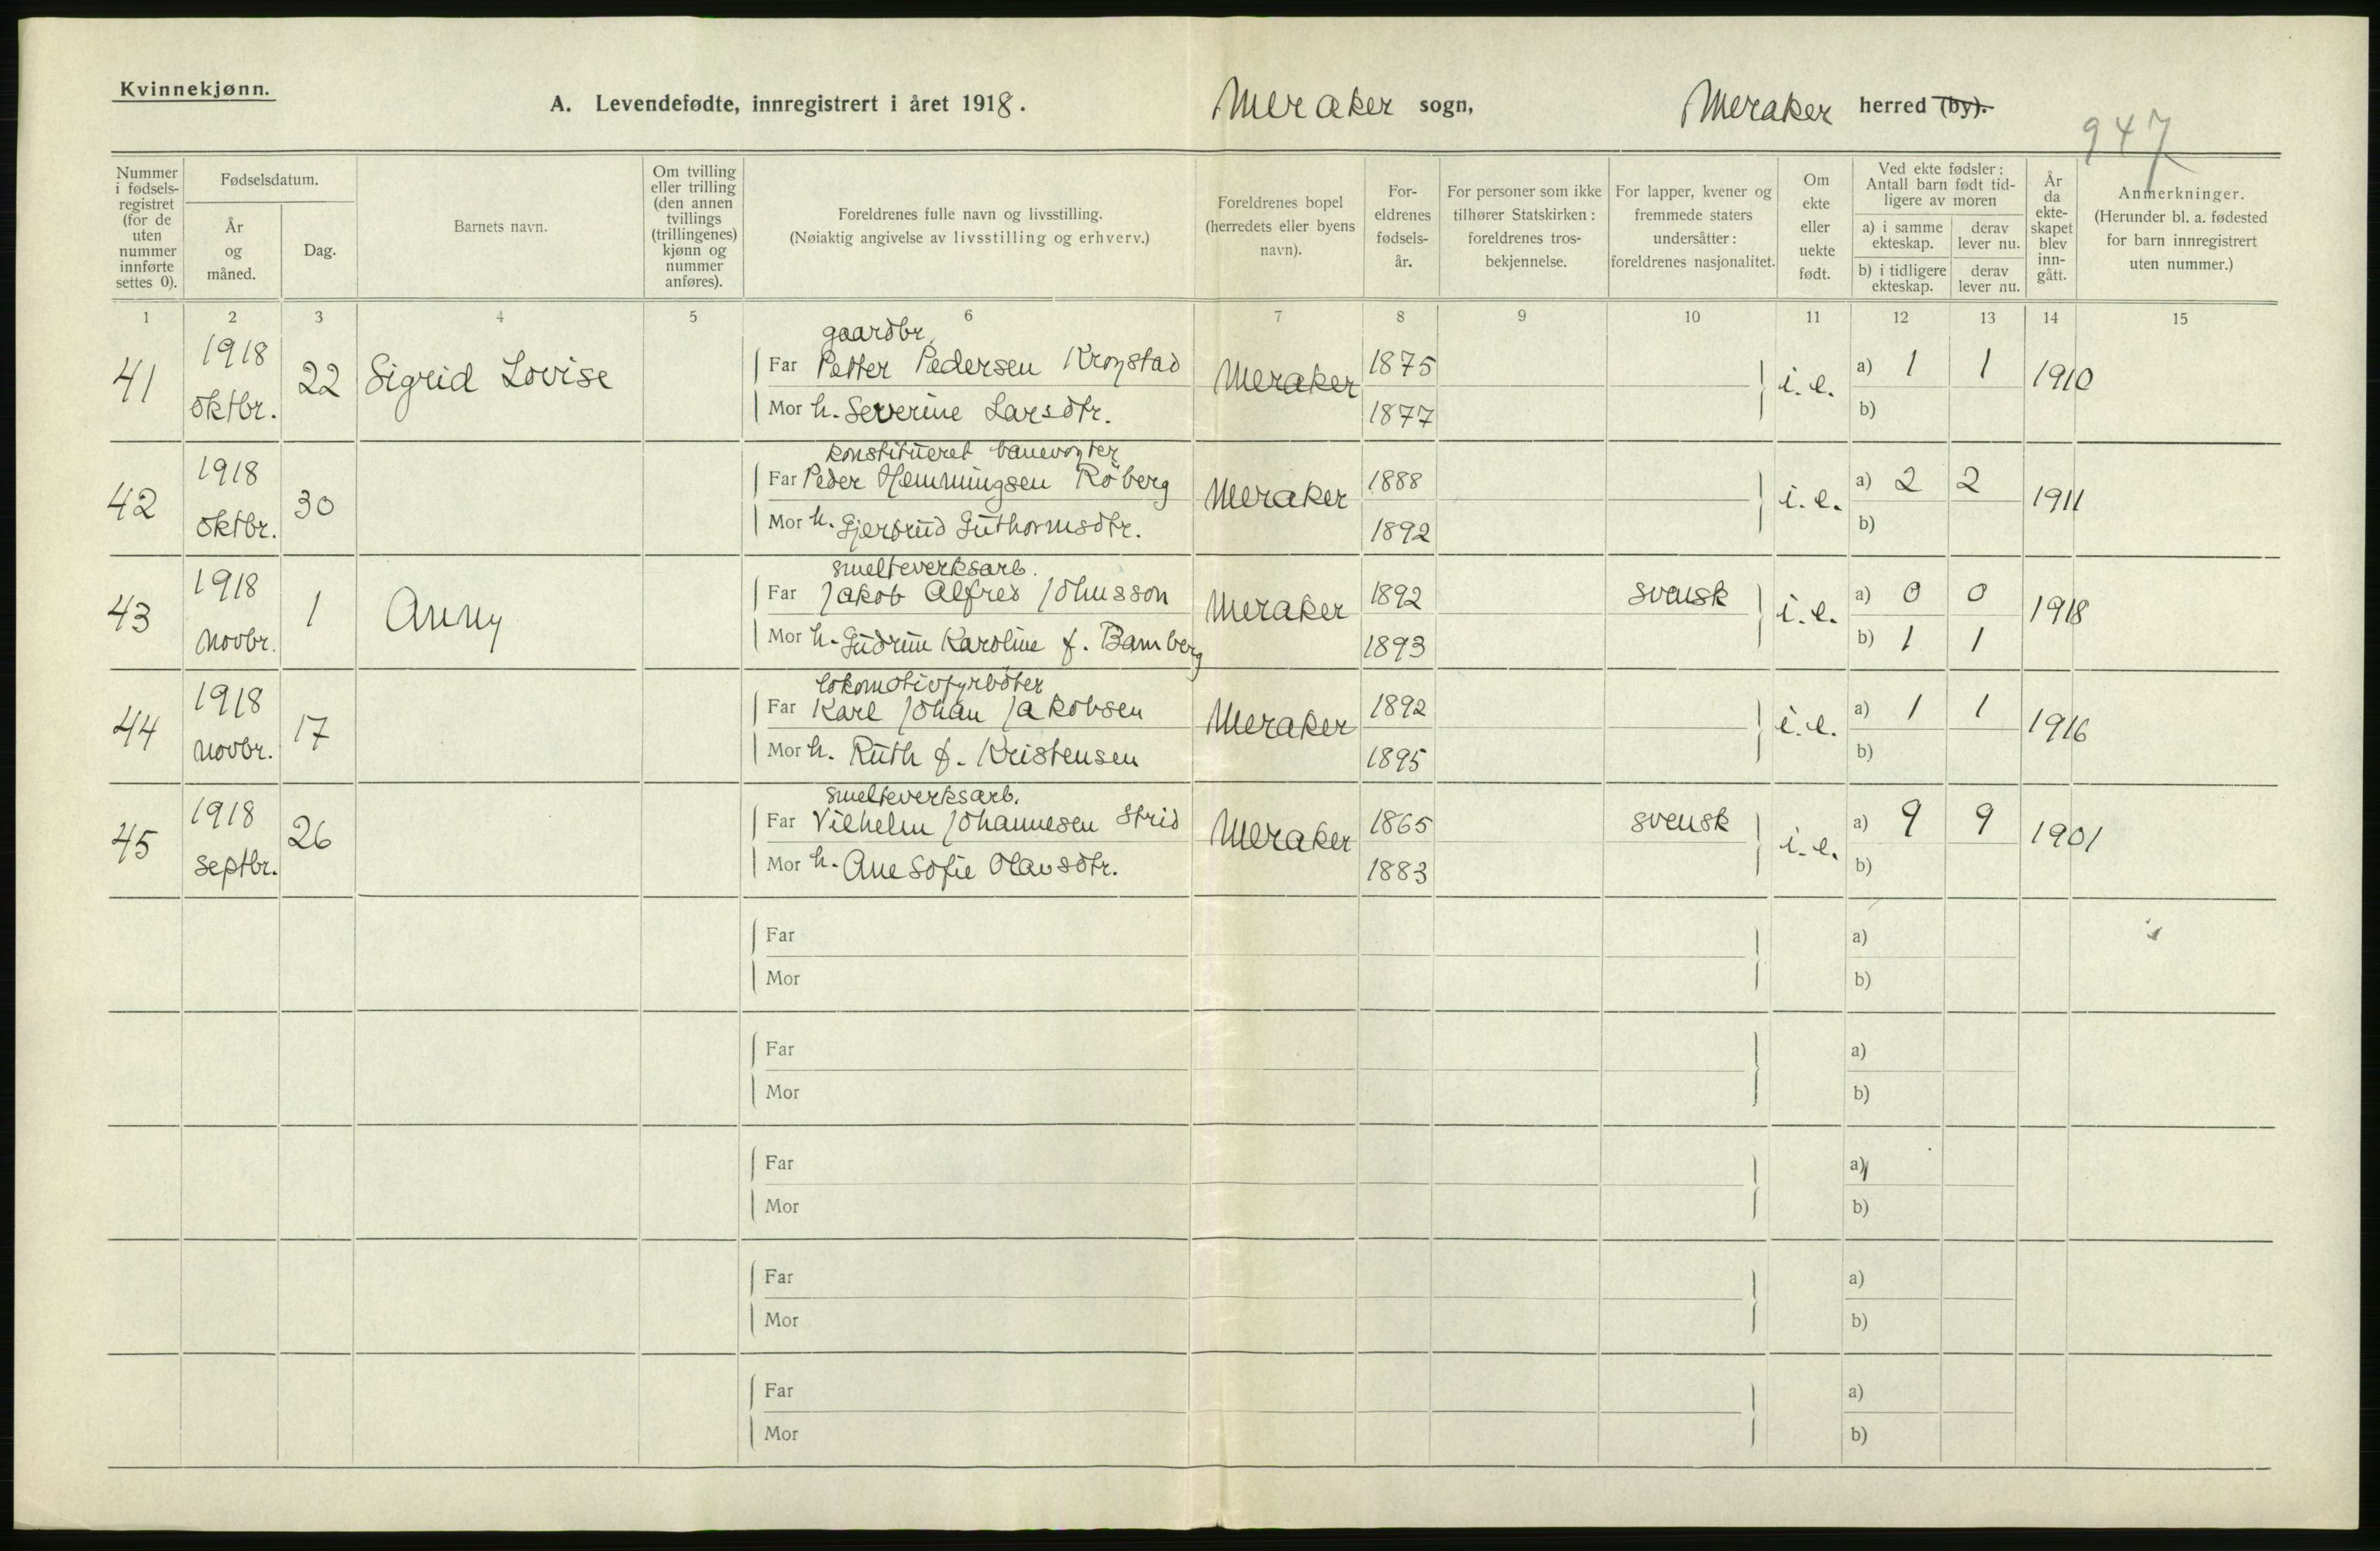 Kvinnekjønn.
A. Levendefødte, innregistrert i året 1918. Meraker sogn, Meraker herred (by).
947
Nummer i fødsels-registret (for de uten nummer innførte settes 0).
Fødselsdatum.
År og måned.
Dag.
Barnets navn.
Om tvilling eller trilling (den annen tvillings (trillingenes) kjønn og nummer anføres).
Foreldrenes fulle navn og livsstilling.
(Nøiaktig angivelse av livsstilling og erhverv.)
Foreldrenes bopel (herredets eller byens navn).
For-eldrenes fødsels-år.
For personer som ikke tilhører Statskirken: foreldrenes tros-bekjennelse.
For lapper, kvener og fremmede staters undersåtter: foreldrenes nasjonalitet.
Om ekte eller uekte født.
Ved ekte fødsler: Antall barn født tid-ligere av moren
a) i samme ekteskap. derav lever nu.
b) i tidligere ekteskap. derav lever nu.
År da ekte-skapet blev inn-gått.
Anmerkninger.
(Herunder bl. a. fødested for barn innregistrert uten nummer.)
1 2 3 4 5 6 7 8 9 10 11 12 13 14 15
gaardbr.
41 1918 oktbr. 22 Sigrid Lovise Far Petter Pedersen Krogstad Meraker 1875 i.e. a) 1 1 1910
Mor h. Severine Larsdtr. 1877 b)
konstitueret banevogter
42 1918 oktbr. 30 Far Peder Hemmingsen Röberg Meraker 1888 i.e. a) 2 2 1911
Mor h. Gjertrud Guthormsdtr. 1892 b)
smelteverksarb.
43 1918 novbr. 1 Anny Far Jakob Alfred Johnsson Meraker 1892 svensk i.e. a) 0 0 1918
Mor h. Gudrun Karoline f. Bamberg 1893 b) 1 1
lokomotivfyrbøter
44 1918 novbr. 17 Far Karl Johan Jakobsen Meraker 1892 i.e. a) 1 1 1916
Mor h. Ruth f. Kristensen 1895 b)
smelteverksarb.
45 1918 septbr. 26 Far Vilhelm Johannesen Strid Meraker 1865 svensk i.e. a) 9 9 1901
Mor h. Ane Sofie Olausdtr. 1883 b)
Far a)
Mor b)
Far a)
Mor b)
Far a)
Mor b)
Far a)
Mor b)
Far a)
Mor b)